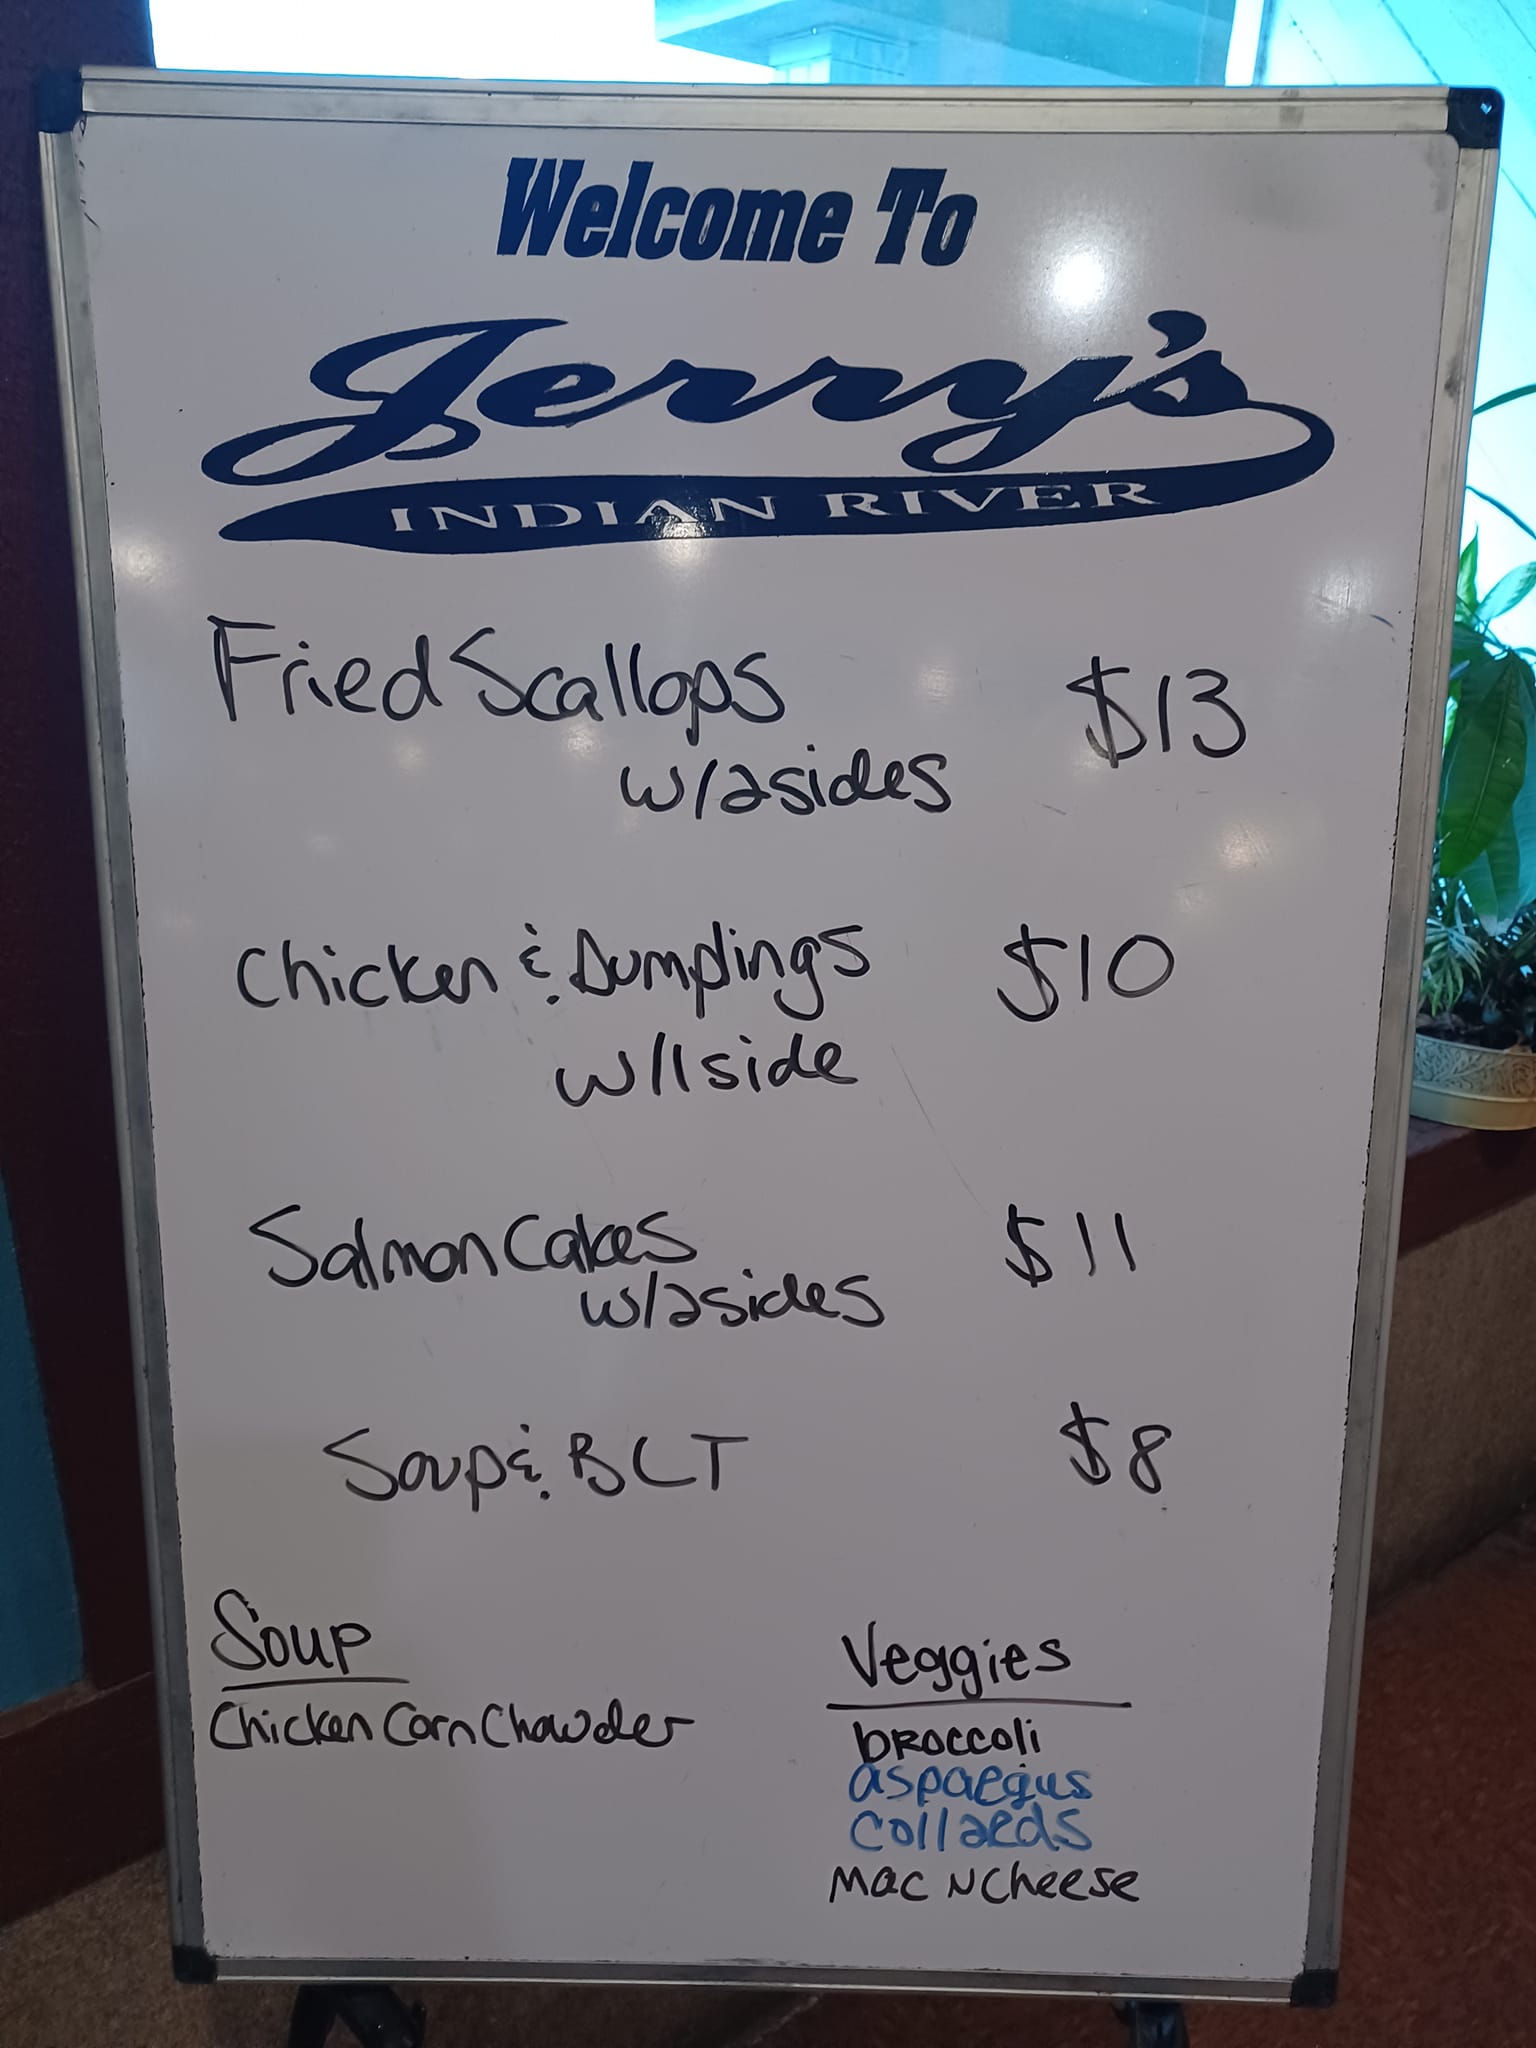 Welcome To
Jerry's
INDIAN RIVER
Fried Scallops $13
w/2sides
Chicken & Dumplings $10
w/1side
Salmon Cakes $11
w/2sides
Soup & BLT $8
Soup
Chicken Corn Chowder
Veggies
broccoli
asparagus
collards
Mac N Cheese